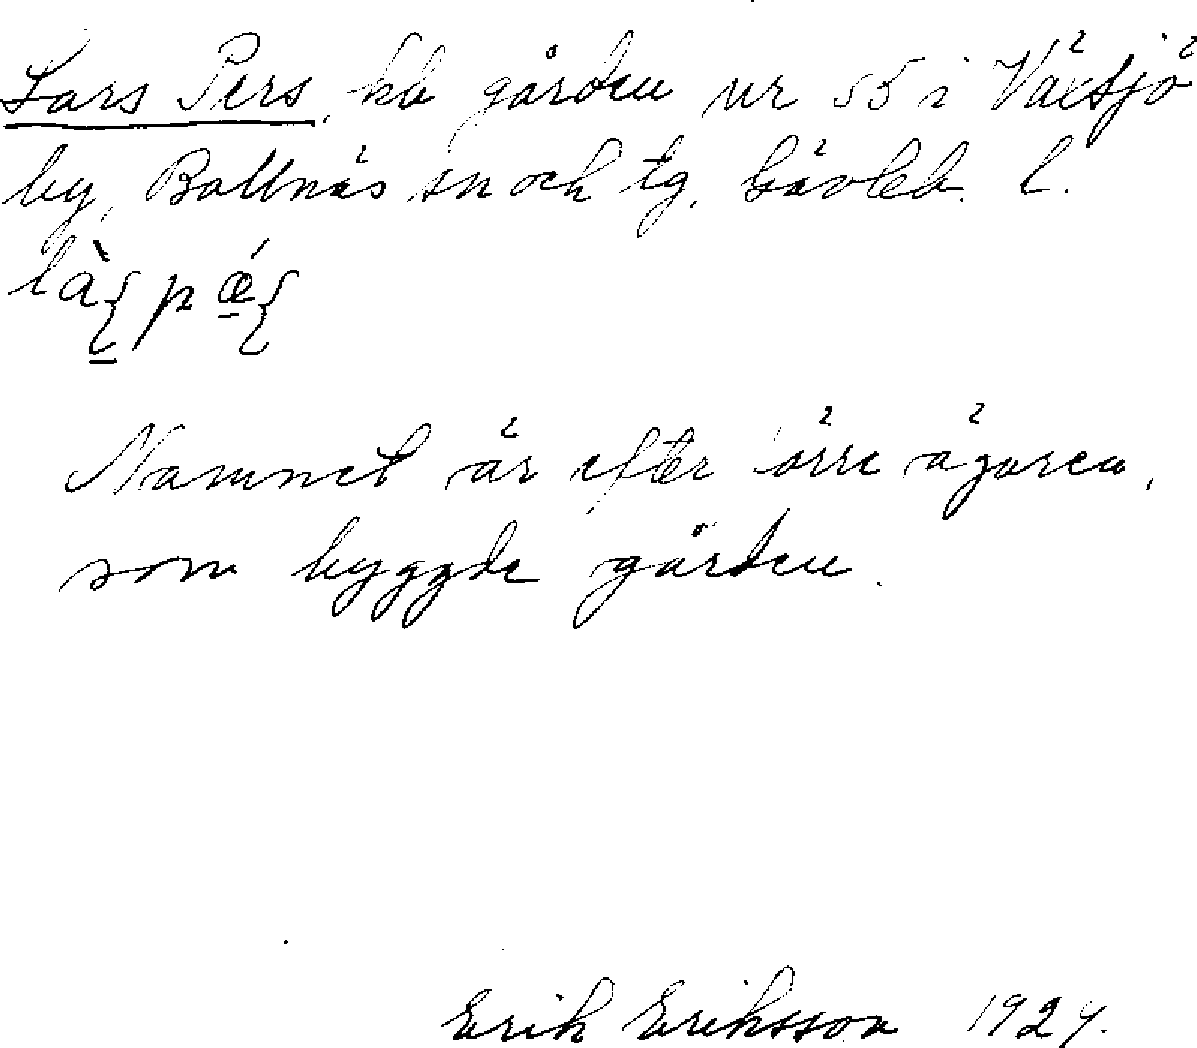 Lars Pers, kb gården nr 55 i Växsjö
by, Bollnäs sn och tg. Gävleb. l.
Namnet är efter förre ägaren,
som byggde gården.
Erik Eriksson 1924.